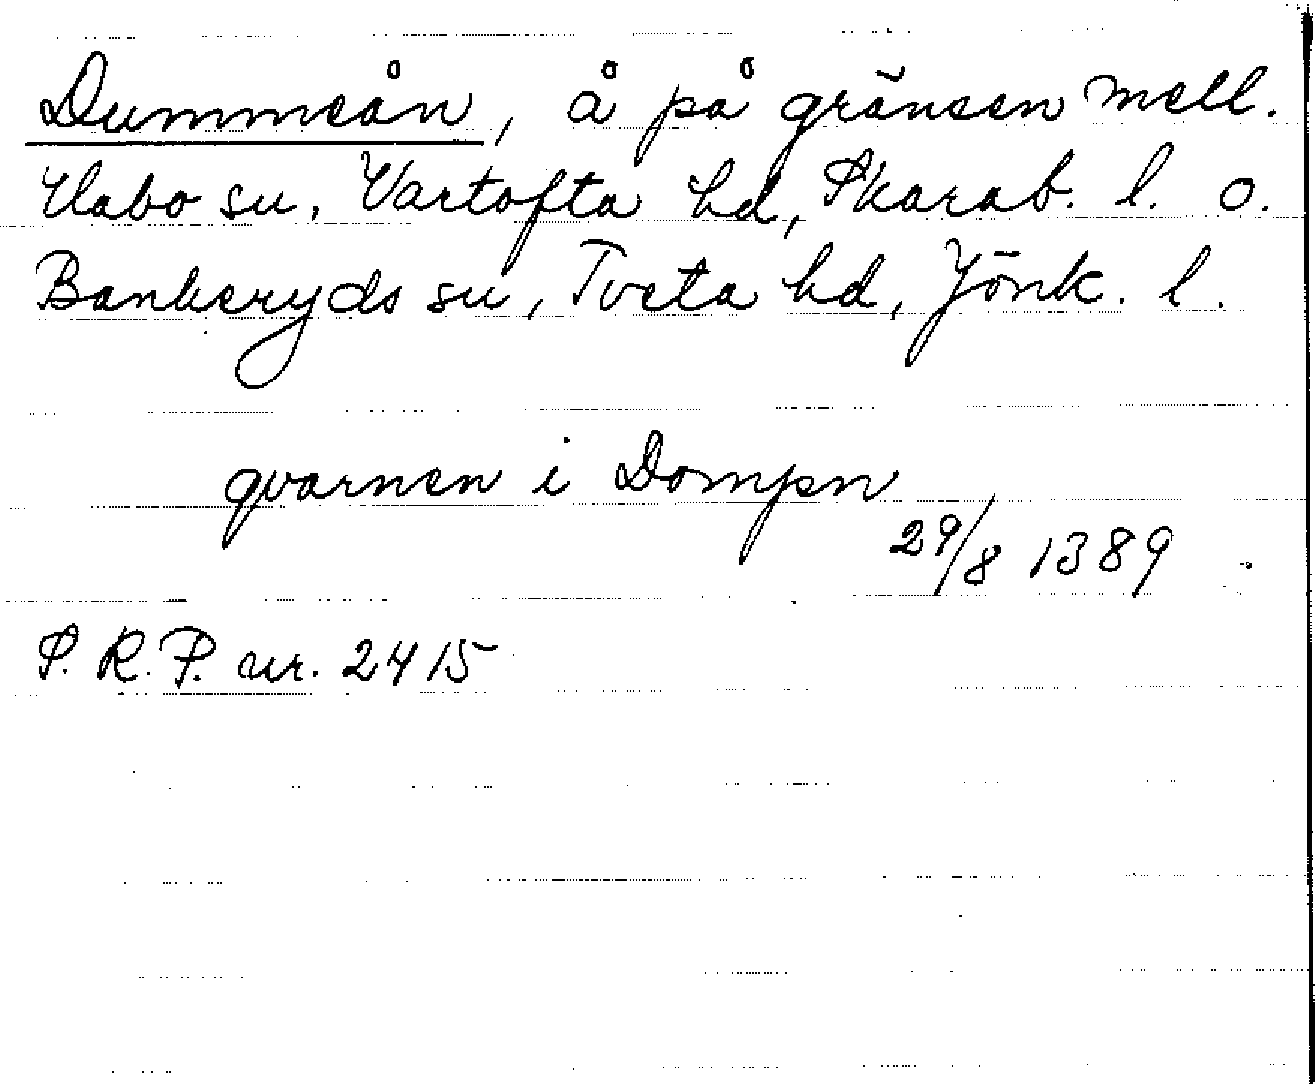 Dummeån, å på gränsen mell.
Habo sn, Vartofta hd, Skarab. l. o.
Bankeryds sn, Tveta hd, Jönk. l.
qvarnen i Dompn
29/8 1389
S. R. P. nr. 2415